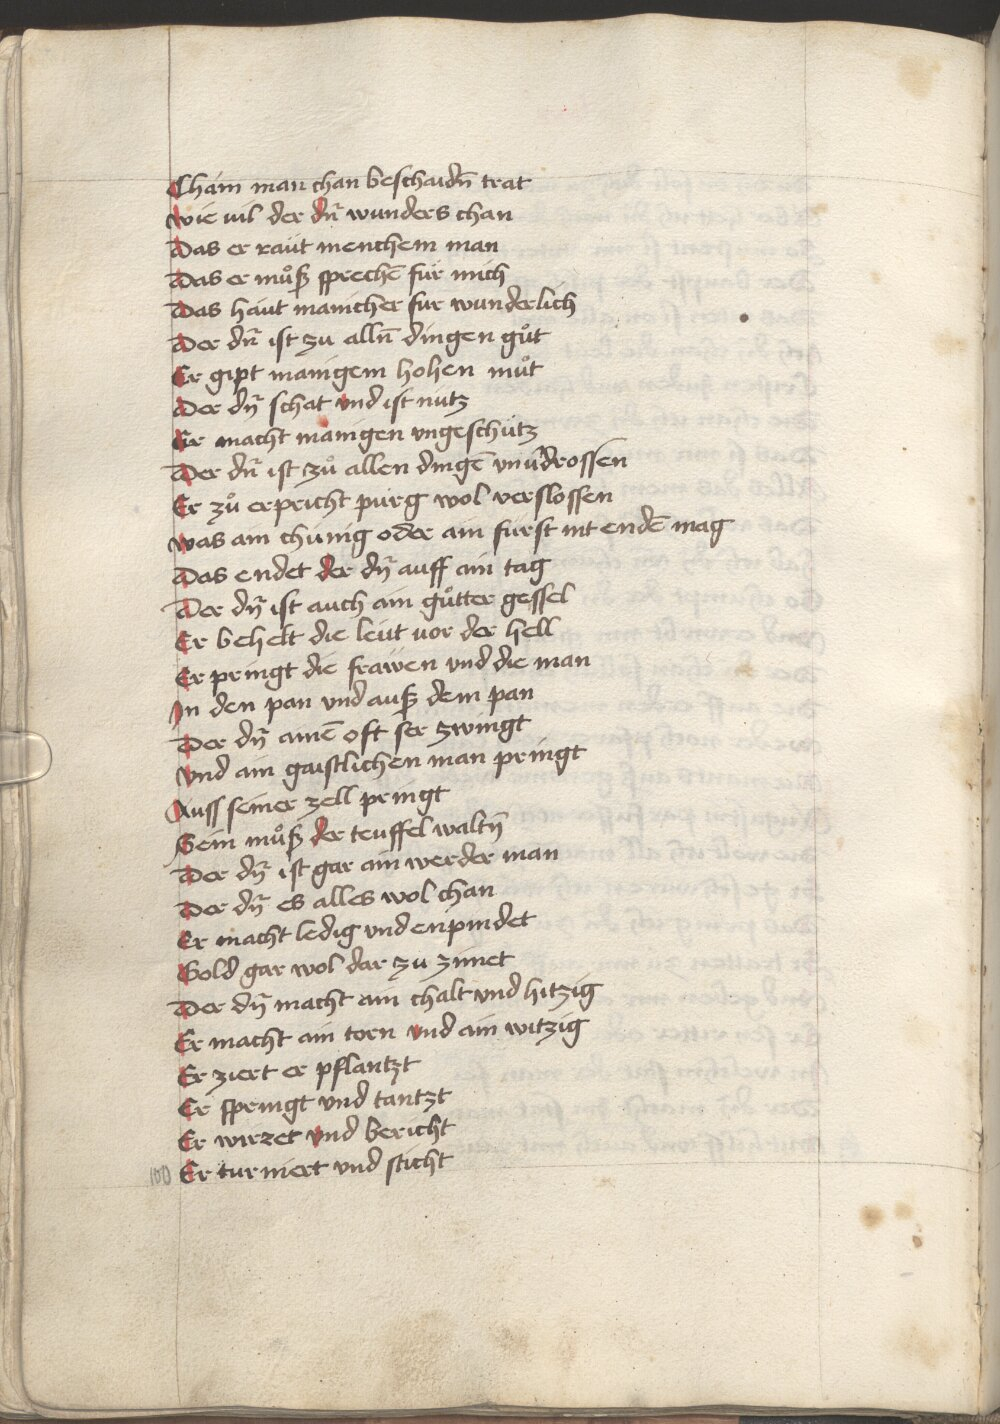 Cham man chan beschaidn̄ trat
wie uil der dn̄ wunders chan
Das er raüt menchem man
Das er můß sprechē für mich
Das haut mancher fur wunderlich
Der dn̄ ist zu alln̄ dingen gůt
Er gipt manigem hohen můt
Der dn̄ schat vnd ist nutz
Er macht manigen vngeschütz
Der dn̄ ist zů allen dingē vnūdrossen
Er zů erpricht purg wol verslossen
was ain chünig oder ain fürst nit endē mag
Das endet der dn̄ auff ain tag
Der dn̄ ist auch ain gůtter gessel
Er behelt die leüt uor der hell
Er pringt die frawen vnd die man
In den pan vnd auß dem pan
Der dn̄ ainē oft ser zwingt
vnd ain gaistlichen man pringt
Auss seiner zell pringt
Sein můß der teuffel waltn̄
Der dn̄ ist gar ain werder man
Der dn̄ es alles wol chan
Er macht ledig vnd enpindet
Gold gar wol dar zu zimet
Der dn̄ macht ain chalt vnd hitzig
Er macht ain torn vnd ain witzig
Er ziert er pflantzt
Er springt vnd tantzt
Er wirzet vnd bericht
100 Er turniert vnd sticht